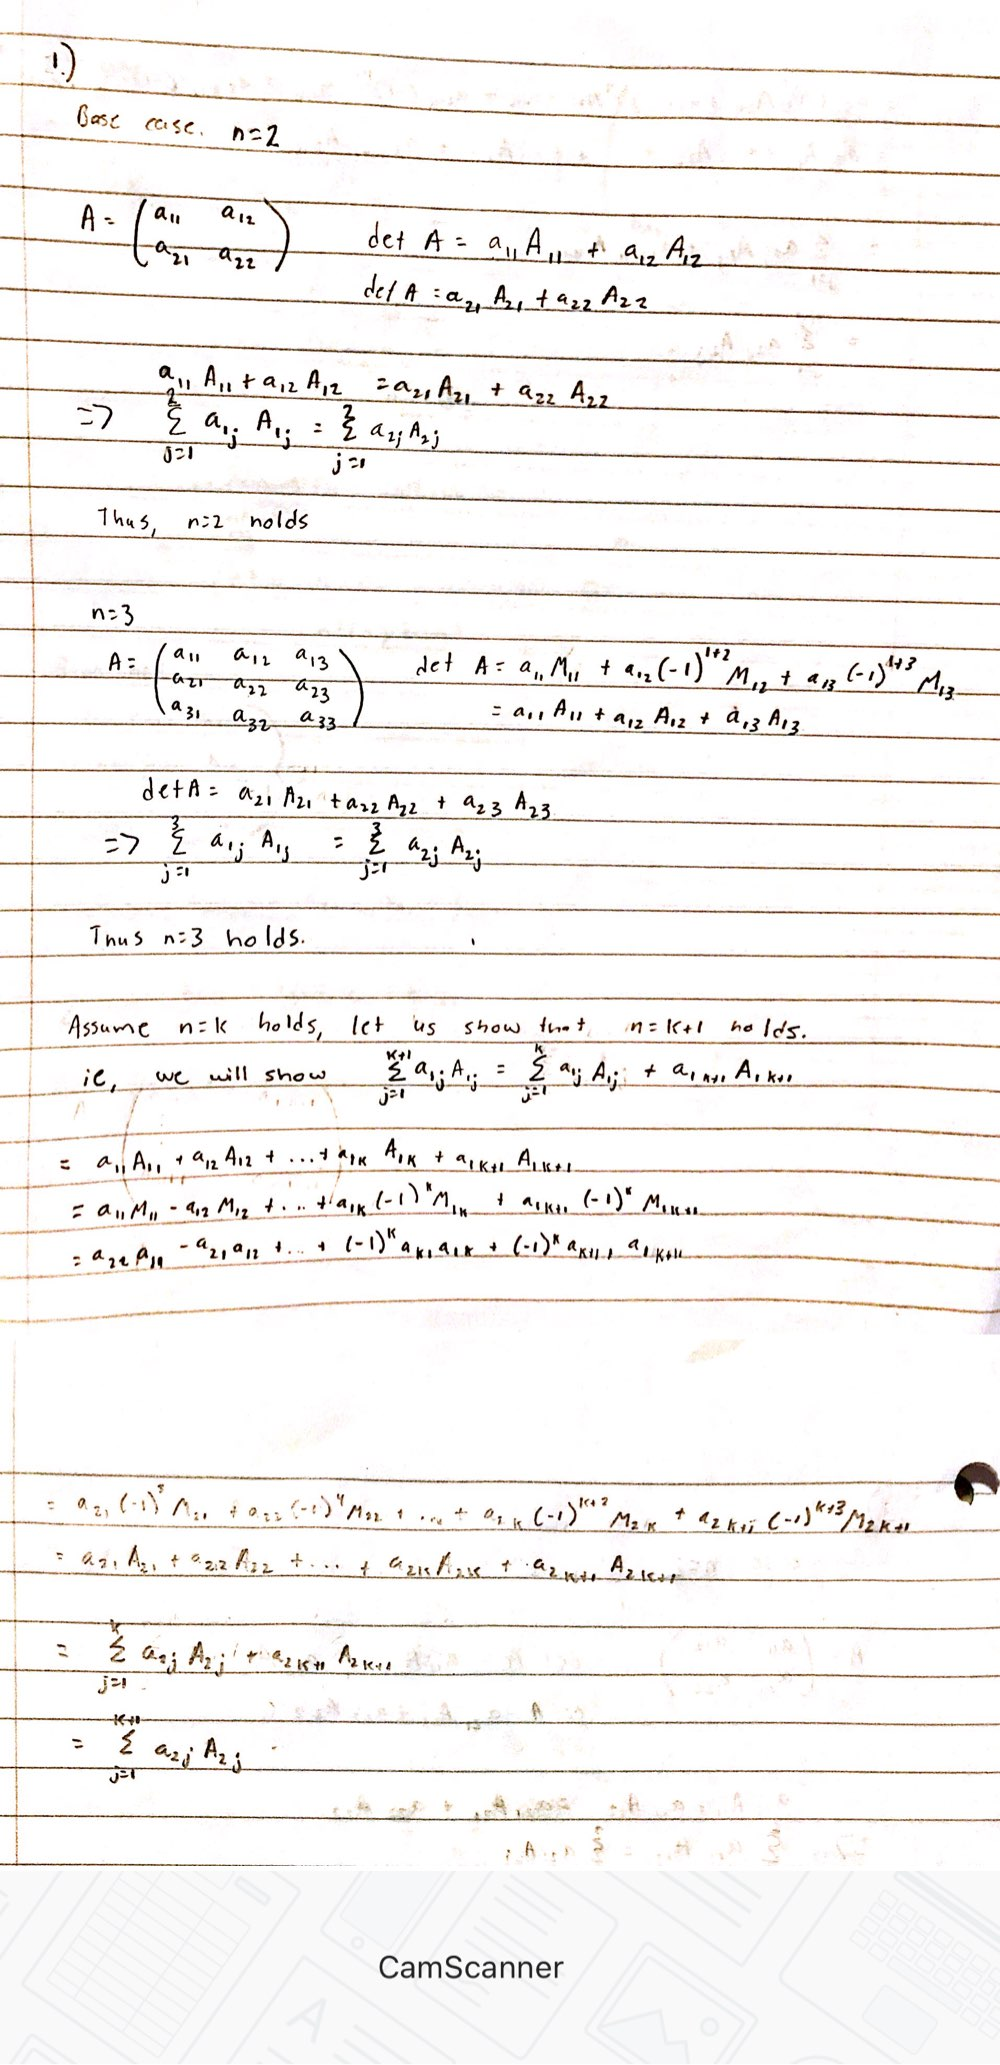 1.)
Base case. n=2
A = ( a₁₁ a₁₂
a₂₁ a₂₂ )
det A = a₁₁A₁₁ + a₁₂A₁₂
det A = a₂₁A₂₁ + a₂₂A₂₂
a₁₁A₁₁ + a₁₂A₁₂ = a₂₁A₂₁ + a₂₂A₂₂
=> Σ_{j=1}^{2} a₁ⱼ A₁ⱼ = Σ_{j=1}^{2} a₂ⱼ A₂ⱼ
Thus, n=2 holds
n=3
A = ( a₁₁ a₁₂ a₁₃
a₂₁ a₂₂ a₂₃
a₃₁ a₃₂ a₃₃ )
det A = a₁₁M₁₁ + a₁₂(-1)^{1+2} M₁₂ + a₁₃(-1)^{1+3} M₁₃
= a₁₁A₁₁ + a₁₂A₁₂ + a₁₃A₁₃
det A = a₂₁A₂₁ + a₂₂A₂₂ + a₂₃A₂₃
=> Σ_{j=1}^{3} a₁ⱼ A₁ⱼ = Σ_{j=1}^{3} a₂ⱼ A₂ⱼ
Thus n=3 holds.
Assume n=k holds, let us show that n=k+1 holds.
ie, we will show Σ_{j=1}^{k+1} a₁ⱼ A₁ⱼ = Σ_{j=1}^{k} a₁ⱼ A₁ⱼ + a_{1k+1} A_{1k+1}
= a₁₁A₁₁ + a₁₂A₁₂ + ... + a_{1k} A_{1k} + a_{1k+1} A_{1k+1}
= a₁₁M₁₁ - a₁₂M₁₂ + ... + a_{1k}(-1)^k M_{1k} + a_{1k+1}(-1)^k M_{1k+1}
= a₂₂a₁₁ - a₂₁a₁₂ + ... + (-1)^k a_{k1}a_{1k} + (-1)^k a_{k+1,1} a_{1k+1}
= a₂₁(-1)³M₂₁ + a₂₂(-1)⁴M₂₂ + ... + a_{2k}(-1)^{k+2} M_{2k} + a_{2k+1}(-1)^{k+3} M_{2k+1}
= a₂₁A₂₁ + a₂₂A₂₂ + ... + a_{2k}A_{2k} + a_{2k+1} A_{2k+1}
= Σ_{j=1}^{k} a₂ⱼ A₂ⱼ + a_{2k+1} A_{2k+1}
= Σ_{j=1}^{k+1} a₂ⱼ A₂ⱼ
CamScanner